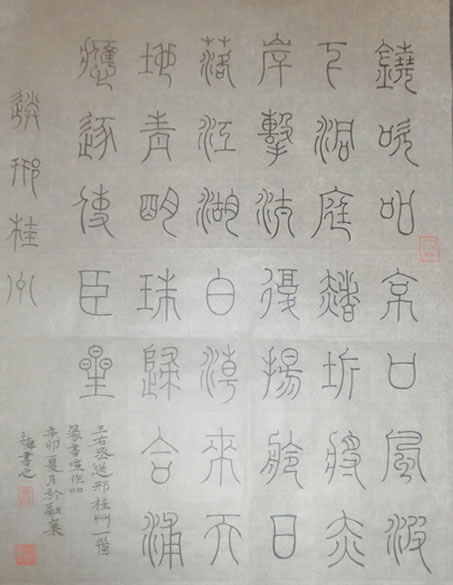 鐃吹吅京口風波
下洞庭赭圻將赤
岸擊汰復揚舲日
落江湖白潮來天
地青明珠歸合浦
應逐使臣星
王右丞送邢桂州一首
篆書喧作吅
辛卯夏月於
書之
送邢桂州